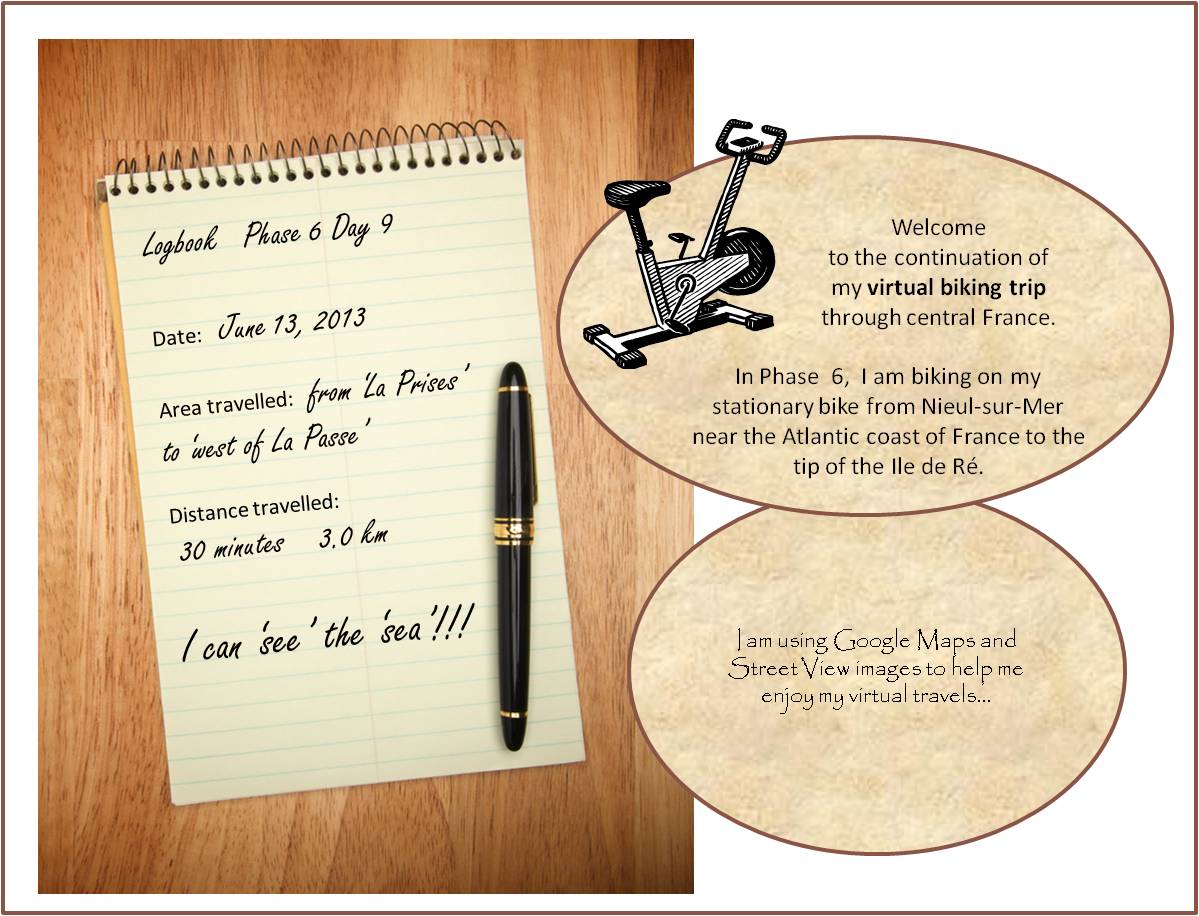 Logbook Phase 6 Day 9
Date: June 13, 2013
Area travelled: from 'La Prises'
to 'west of La Passe'
Distance travelled:
30 minutes 3.0 km
I can 'see' the 'sea'!!!
Welcome
to the continuation of
my virtual biking trip
through central France.
In Phase 6, I am biking on my
stationary bike from Nieul-sur-Mer
near the Atlantic coast of France to the
tip of the Ile de Ré.
I am using Google Maps and
Street View images to help me
enjoy my virtual travels...